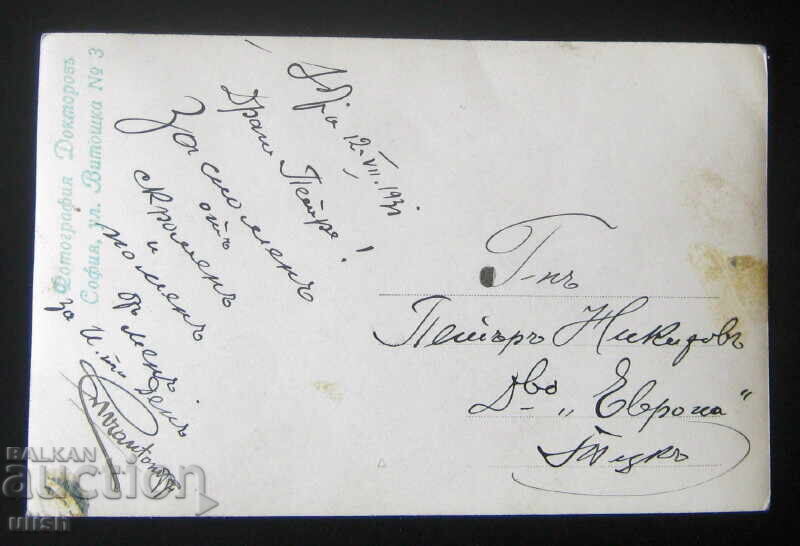 Фотография Докторовъ
София, ул. Витошка № 3
София 12.VII.193
Драги Петре!
За споменъ
отъ
скроменъ
и
поменъ
отъ менъ
за И. денъ
Г-нъ
Петъръ Никифовъ
Д-во "Европа"
BALKAN
Auction
ulish